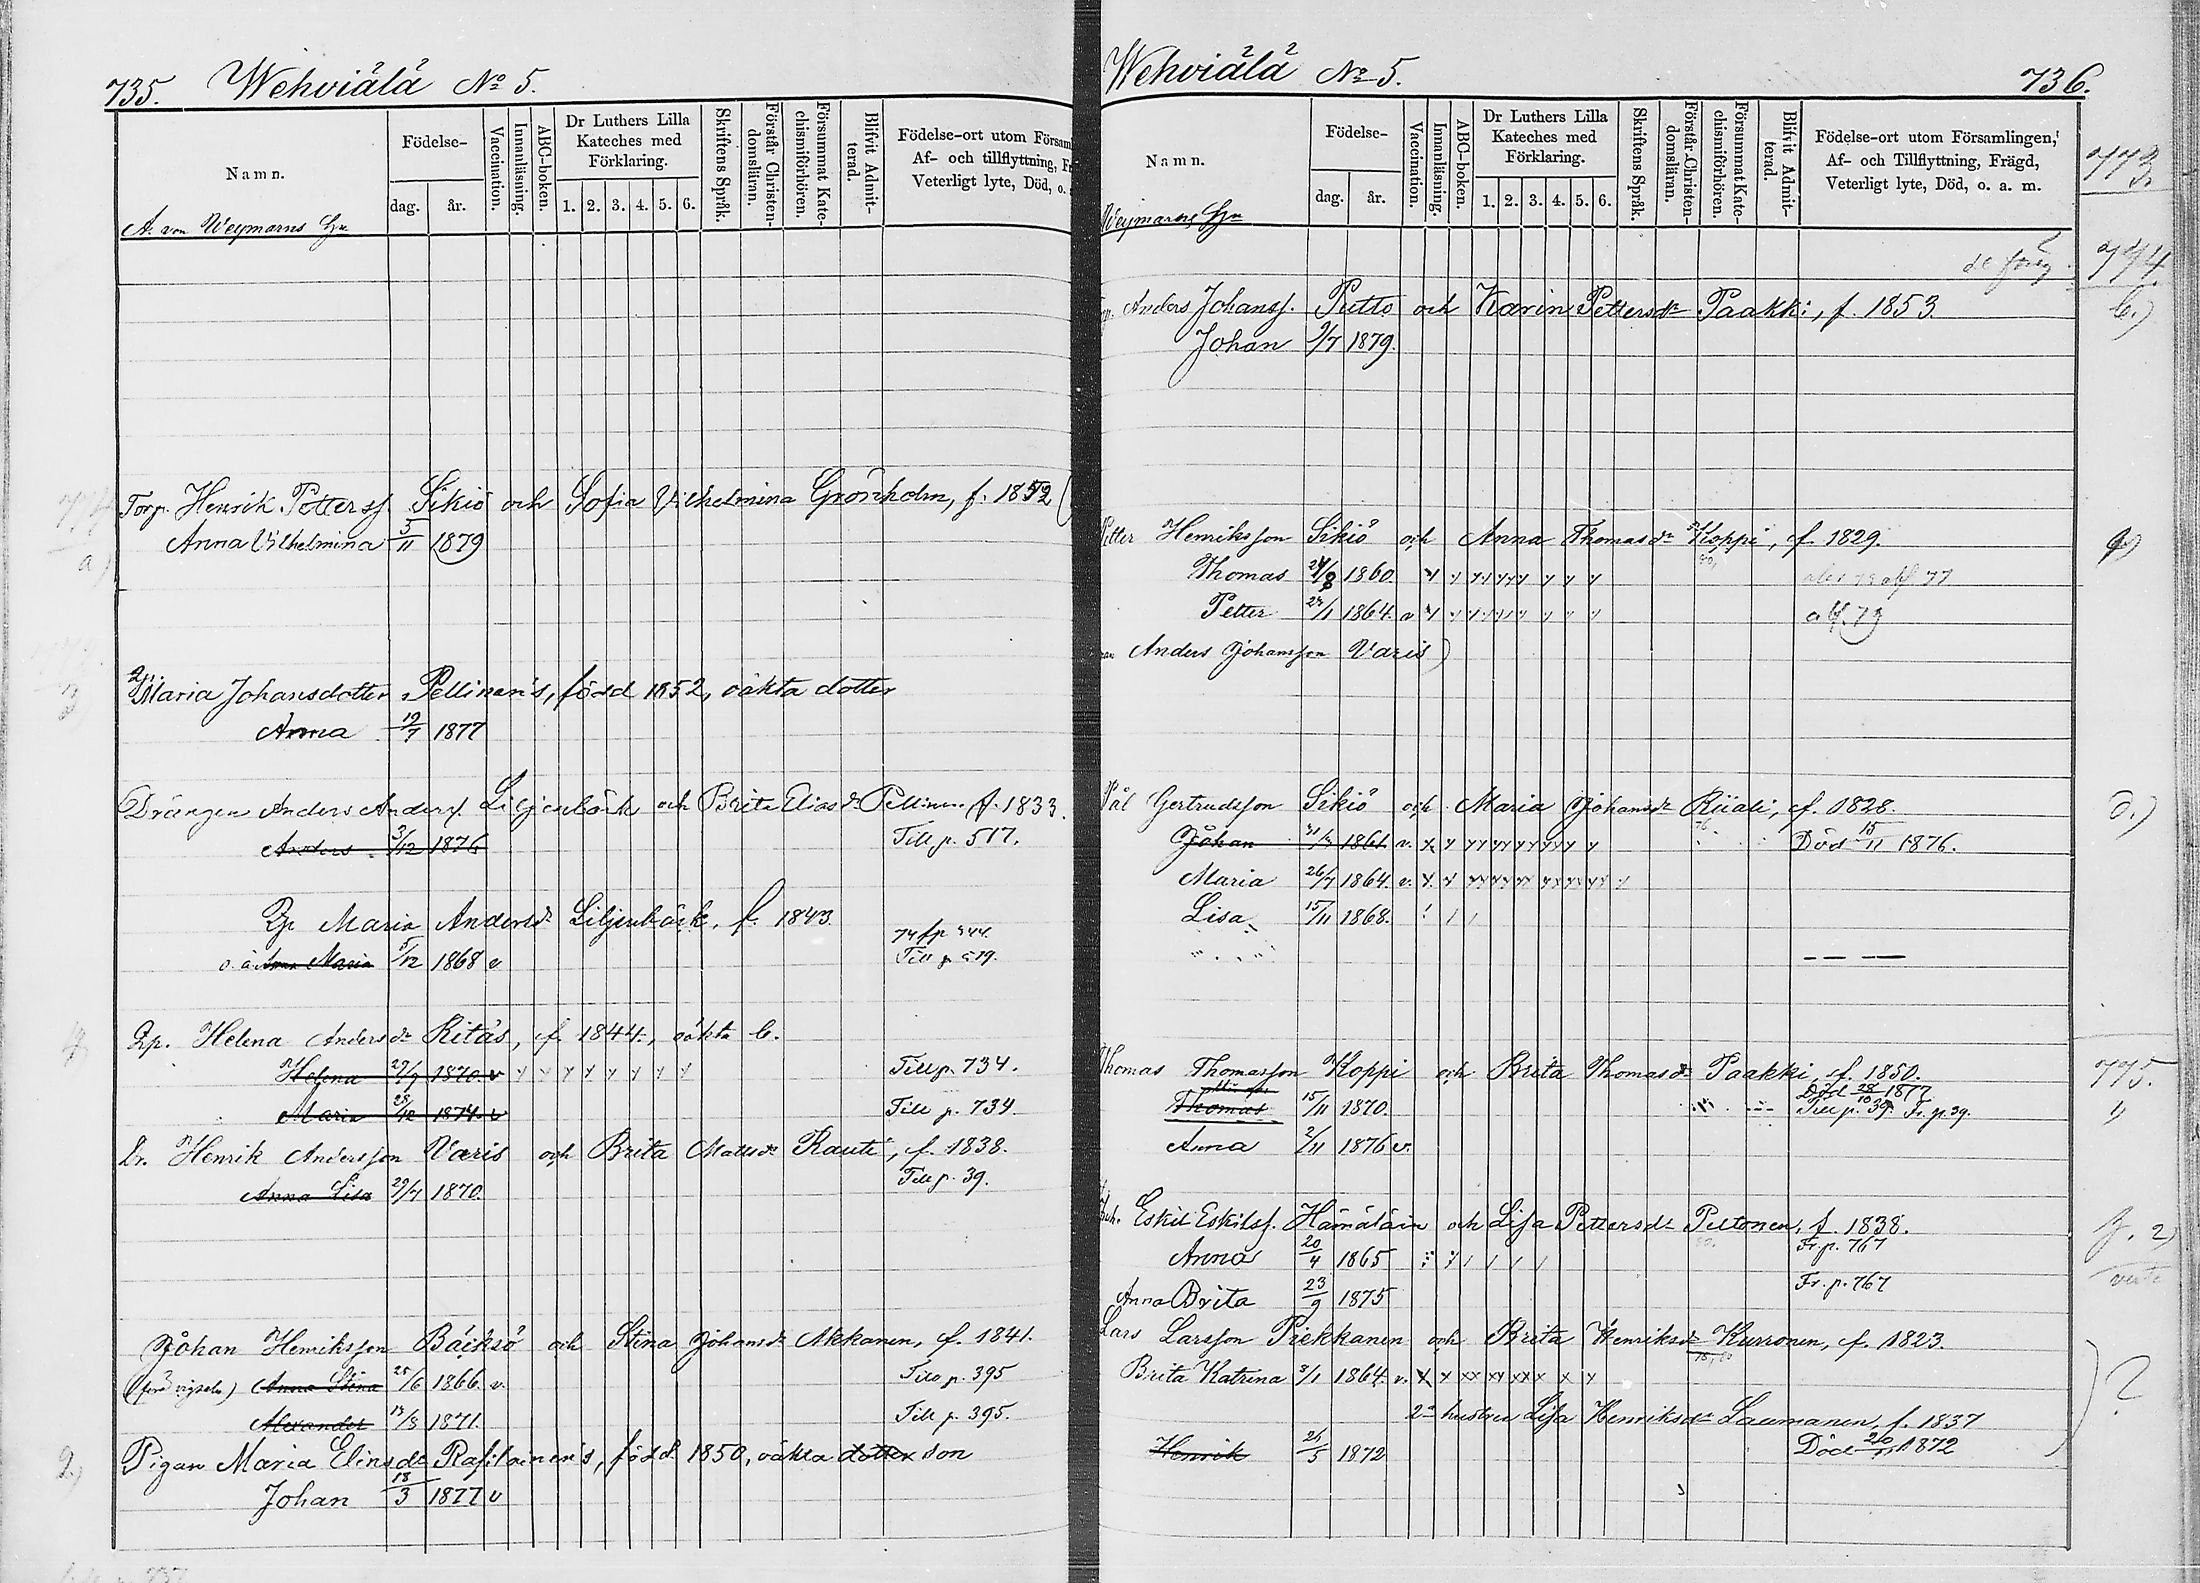 735. Wehviälä No 5.
Namn.
Födelse-
dag. år.
Vaccination.
Innanläsning.
ABC-boken.
Dr Luthers Lilla Kateches med Förklaring.
1. 2. 3. 4. 5. 6.
Skriftens Språk.
Förstår Christendomsläran.
Försummat Katechismiförhören.
Blifvit Admitterad.
Födelse-ort utom Försam
Af- och tillflyttning, Fr
Veterligt lyte, Död, o.
A. von Weymarns
Torp. Henrik Petterss. Sikiö och Sofia Vilhelmina Grönholm, f. 1852
Anna Vilhelmina 5/11 1879
a)
Maria Johansdotter Pellinen's, född 1852, oäkta dotter
Anna 19/7 1877
Drängen Anders Anderss. Liljenbäck och Brita Eliasdr Pellinen f. 1833.
Anders 3/12 1876 Till p. 517.
Maria Andersdr Liljenbäck, f. 1843.
o. ä. Anna Maria 5/12 1868 v
Helena Andersdr Ritäs, f. 1844., oäkta b.
Helena 29/9 1870. v y y y y y y y y Till p. 734.
Maria 28/12 1874. v Till p. 734.
Dr. Henrik Andersson Varis och Brita Mattsdr Rauti, f. 1838.
Anna Lisa 29/7 1870. Till p. 39.
Johan Henriksson Bäcksö och Stina Johansdr Akkanen, f. 1841.
(före vigseln) Anna Stina 25/6 1866. v. Till p. 395
Alexander 13/8 1871. Till p. 395.
2) Pigan Maria Eliasdr Rasilainen's, född 1850, oäkta dotter son
Johan 18/3 1877 v
Wehviälä No 5. 736.
Namn.
Födelse-
dag. år.
Vaccination.
Innanläsning.
ABC-boken.
Dr Luthers Lilla Kateches med Förklaring.
1. 2. 3. 4. 5. 6.
Skriftens Språk.
Förstår Christendomsläran.
Försummat Katechismiförhören.
Blifvit Admitterad.
Födelse-ort utom Församlingen,
Af- och Tillflyttning, Frägd,
Veterligt lyte, Död, o. a. m.
773.
Weymarns
774.
Anders Johanss. Putto och Karin Pettersdr Paakki, f. 1853 b.)
Johan 9/7 1879.
Petter Henriksson Sikiö och Anna Thomasdr Koppi, f. 1829.
Thomas 24/8 1860.
Petter 23/1 1864. v alf. 79
Anders Johansson Varis)
Pål Gertrudsson Sikiö och Maria Johansdr Riiali, f. 1828. d.)
Johan 1861. v. Död 15/11 1876.
Maria 26/7 1864. v.
Lisa 15/11 1868.
Thomas Thomasson Koppi och Brita Thomasdr Paakki, f. 1850. 775.
Död 28/10 1877
Thomas 15/11 1870. Till p. 39. Fr. p. 39.
Anna 2/11 1876 v.
Eskil Eskilss. Hämäläin och Lisa Pettersdr Peltonen, f. 1838.
Anna 20/4 1865 Fr. p. 767
Anna Brita 23/9 1875 Fr. p. 767
Lars Larsson Piekkanen och Brita Henriksdr Kurronen, f. 1823.
Brita Katrina 3/1 1864. v. ?
2a hustru Lisa Henriksdr Laumanen, f. 1837
Henrik 21/5 1872 Död 1872